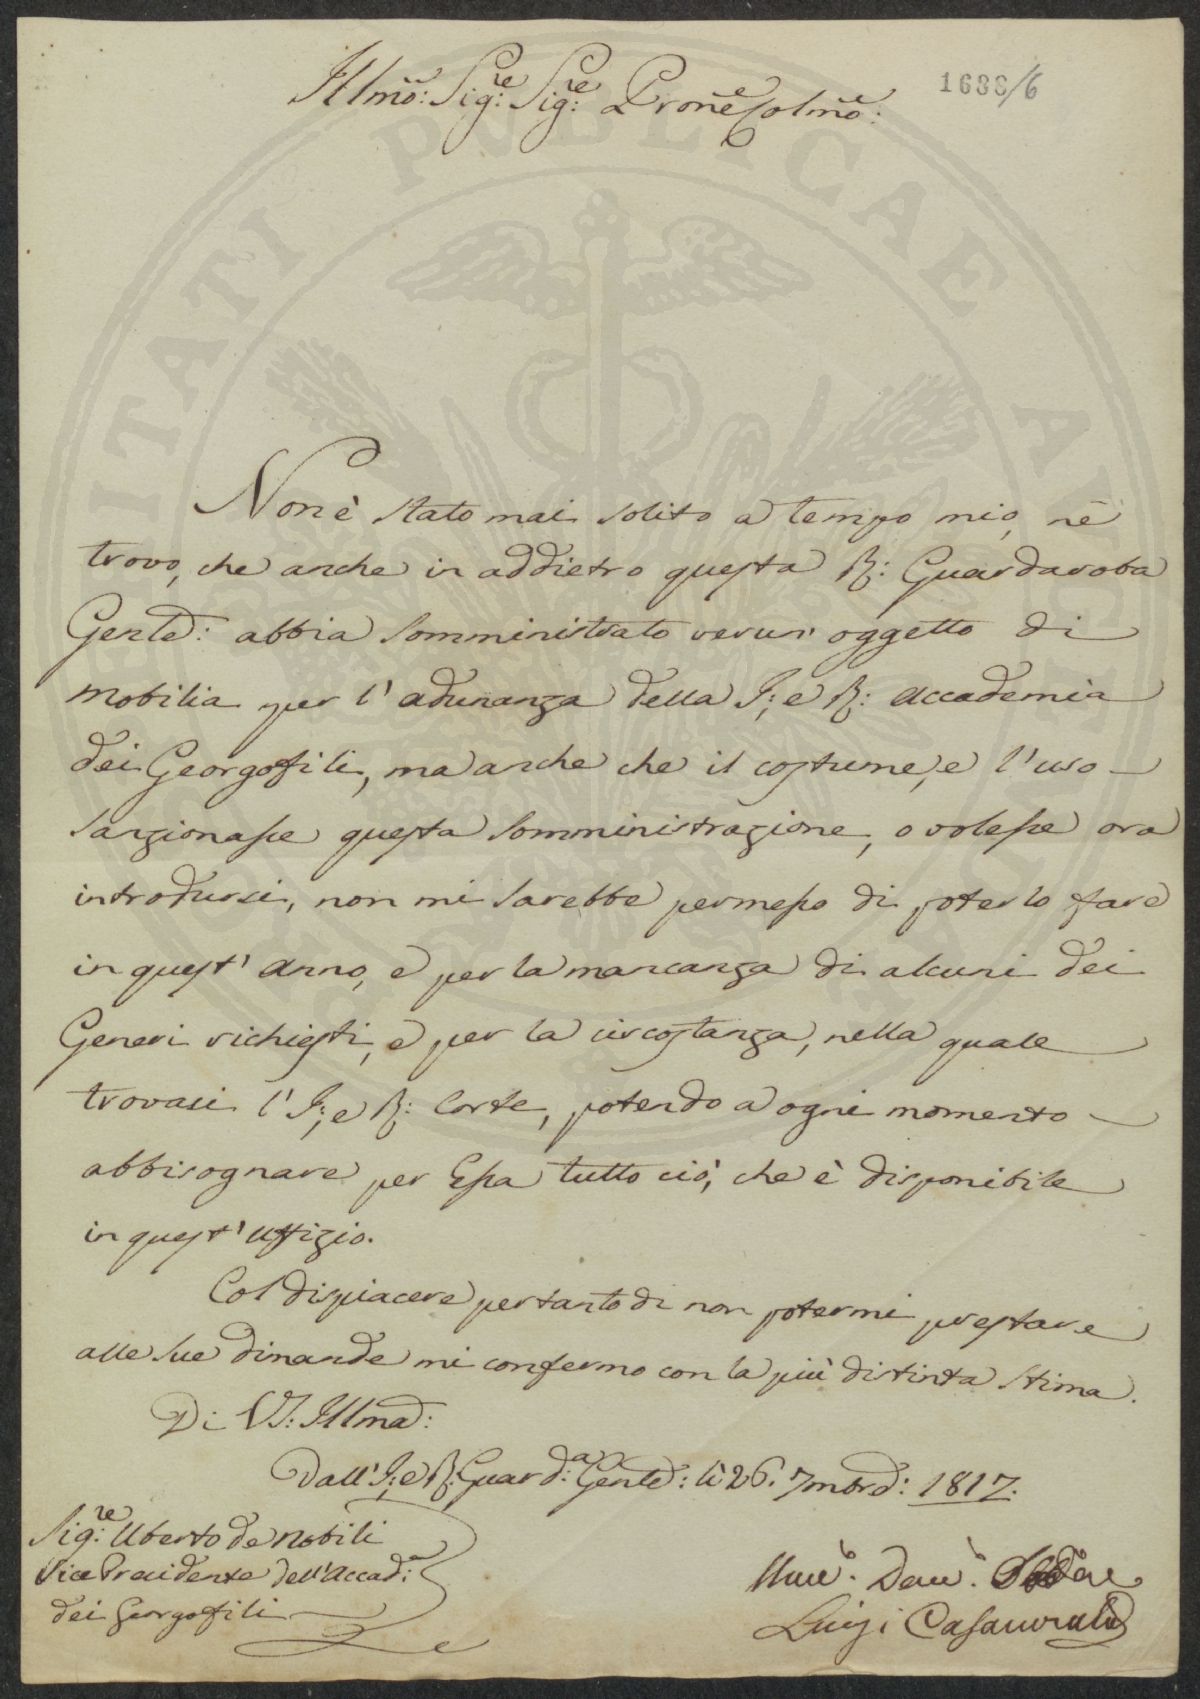 1688/6
Illmo: Sig:re Sig:re Prone Colmo:
Non è stato mai solito a tempo mio, nè
trovo, che anche in addietro questa R: Guardaroba
Genle: abbia somministrato verun' oggetto di
mobilia per l'adunanza della I: e R: Accademia
dei Georgofili, ma anche che il costume, e l'uso
sanzionasse questa somministrazione, o volesse ora
introdursi, non mi sarebbe permesso di poterlo fare
in quest'anno, e per la mancanza di alcuni dei
Generi richiesti, e per la circostanza, nella quale
trovasi l'I: e R: Corte, potendo a ogni momento
abbisognare per Essa tutto ciò, che è disponibile
in quest'uffizio.
Col dispiacere pertanto di non potermi prestare
alle sue dimande mi confermo con la più distinta stima.
Di VS: Illma:
Dall'I: e R: Guard:a Genle: li 26. 7mbre: 1817.
Sig:re Uberto de Nobili
Vice Presidente dell'Accad:a
dei Georgofili
Umo. Devo.
Luigi Casanuova
PUBLICAE